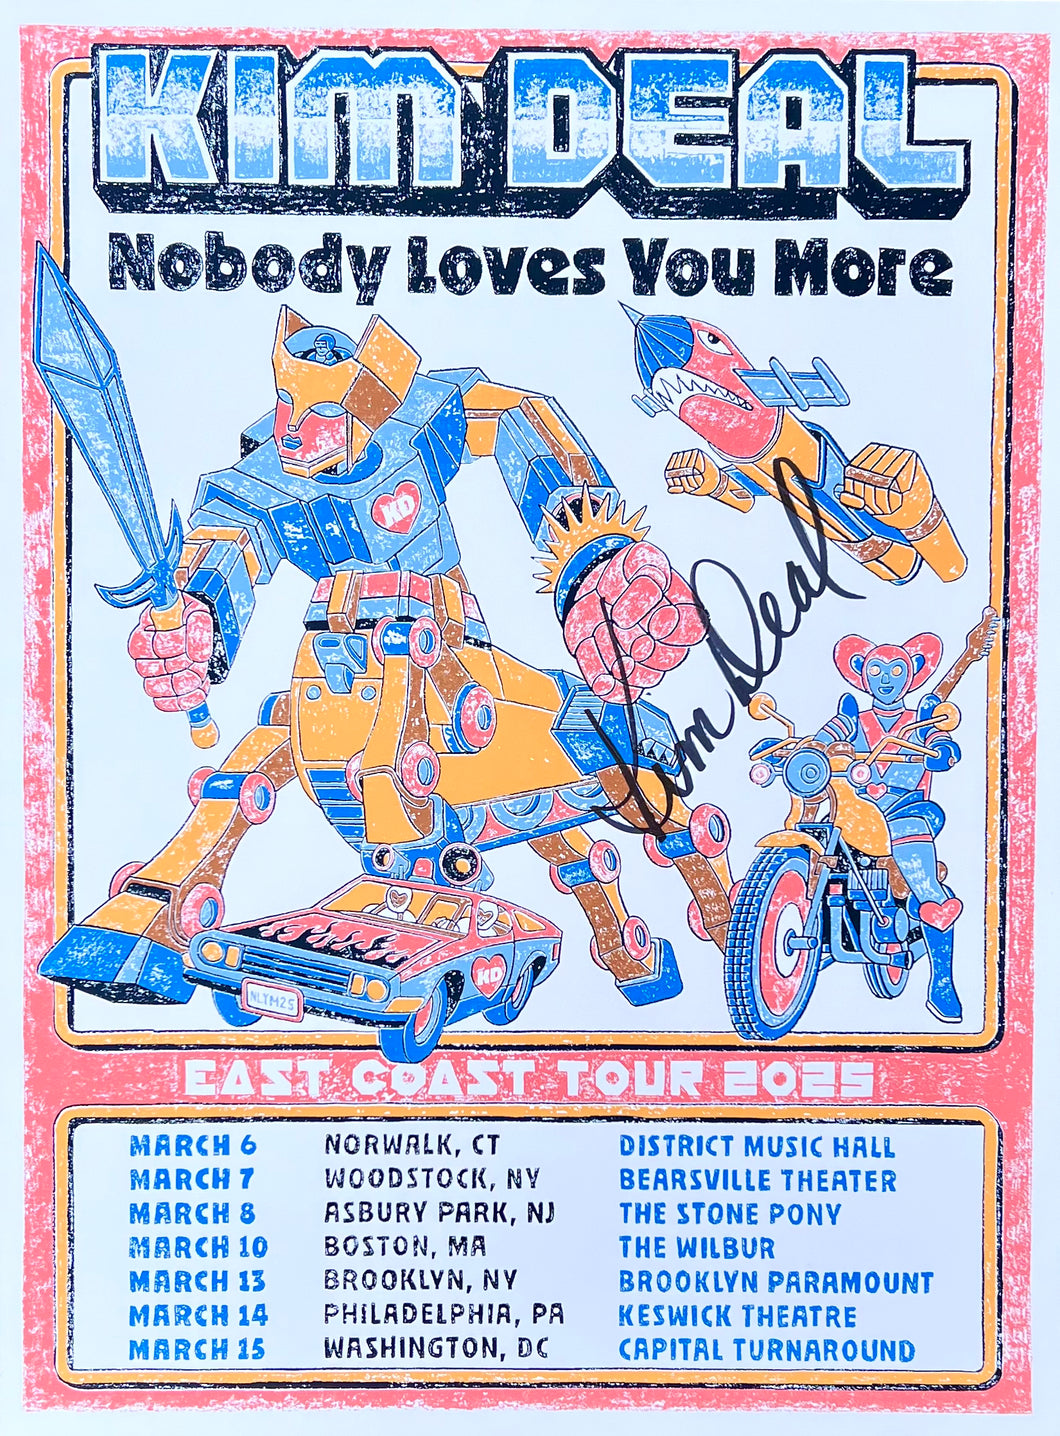 KIM DEAL
Nobody Loves You More
KD
Kim Deal
KD
NLYM25
EAST COAST TOUR 2025
MARCH 6 NORWALK, CT DISTRICT MUSIC HALL
MARCH 7 WOODSTOCK, NY BEARSVILLE THEATER
MARCH 8 ASBURY PARK, NJ THE STONE PONY
MARCH 10 BOSTON, MA THE WILBUR
MARCH 13 BROOKLYN, NY BROOKLYN PARAMOUNT
MARCH 14 PHILADELPHIA, PA KESWICK THEATRE
MARCH 15 WASHINGTON, DC CAPITAL TURNAROUND